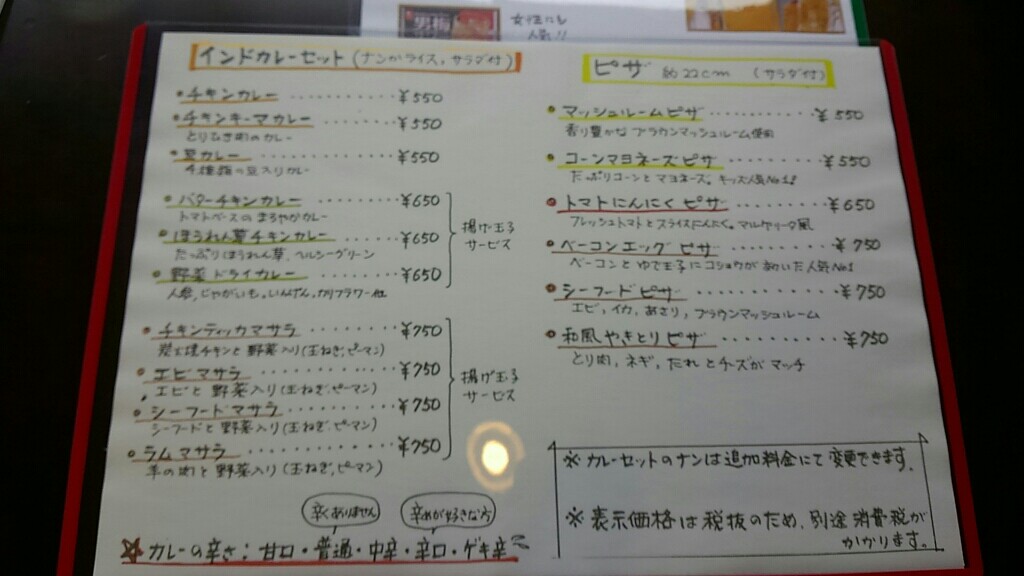 男梅
女性にも
人気!!
インドカレーセット(ナンかライス,サラダ付)
・チキンカレー ・・・・・・・・・・ ¥550
・チキンキーマカレー ・・・・・・・ ¥550
とりひき肉のカレー
・豆カレー ・・・・・・・・・・・・ ¥550
4種類の豆入りカレー
・バターチキンカレー ・・・・・・・ ¥650
トマトベースのまろやかカレー
・ほうれん草チキンカレー ・・・・・ ¥650
たっぷりほうれん草、ヘルシーグリーン
・野菜ドライカレー ・・・・・・・・ ¥650
人参,じゃがいも,いんげん,カリフラワー他
揚げ玉子
サービス
・チキンティッカマサラ ・・・・・・ ¥750
炭火焼チキンと野菜入り(玉ねぎ,ピーマン)
・エビマサラ ・・・・・・・・・・・ ¥750
エビと野菜入り(玉ねぎ,ピーマン)
・シーフードマサラ ・・・・・・・・ ¥750
シーフードと野菜入り(玉ねぎ,ピーマン)
・ラムマサラ ・・・・・・・・・・・ ¥750
羊の肉と野菜入り(玉ねぎ,ピーマン)
揚げ玉子
サービス
辛くありません
辛めが好きな方
☆カレーの辛さ:甘口・普通・中辛・辛口・ゲキ辛
ピザ 約22cm (サラダ付)
・マッシュルームピザ ・・・・・・・ ¥550
香り豊かなブラウンマッシュルーム使用
・コーンマヨネーズピザ ・・・・・・ ¥550
たっぷりコーンとマヨネーズ。キッズ人気No1!
・トマトにんにくピザ ・・・・・・・ ¥650
フレッシュトマトとスライスにんにく。マルゲリータ風
・ベーコンエッグピザ ・・・・・・・ ¥750
ベーコンとゆで玉子にコショウが効いた人気No1
・シーフードピザ ・・・・・・・・・ ¥750
エビ,イカ,あさり,ブラウンマッシュルーム
・和風やきとりピザ ・・・・・・・・ ¥750
とり肉,ネギ,たれとチーズがマッチ
※カレーセットのナンは追加料金にて変更できます。
※表示価格は税抜のため、別途消費税が
かかります。